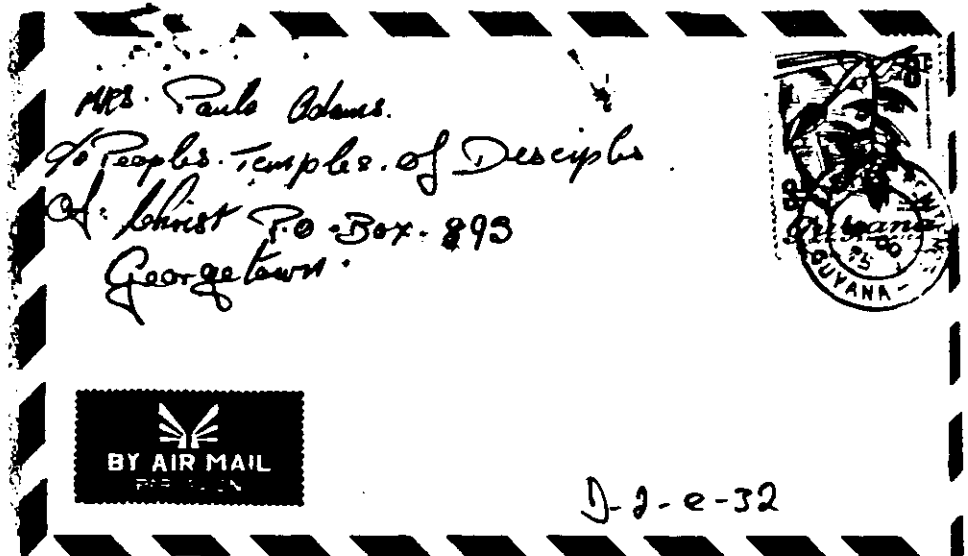 MRS. Paula Adams.
c/o Peoples. Temples. of Desciples
Of. Christ P.O. Box. 893
Georgetown.
Guyana
75
GUYANA
BY AIR MAIL
PAR AVION
D-2-e-32